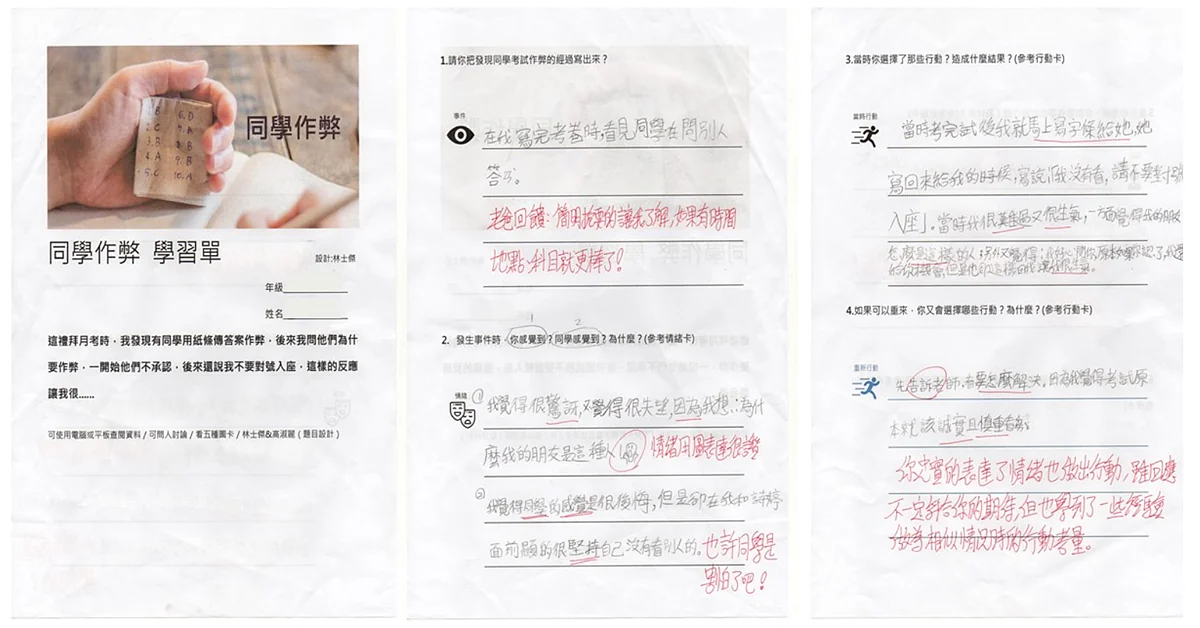 B
C
3.B
4.A
5.C
6.D
A
8.B
9.B
10.A
同學作弊
同學作弊 學習單
設計:林士傑
年級
姓名
這禮拜月考時，我發現有同學用紙條傳答案作弊，後來我問他們為什
要作弊，一開始他們不承認，後來還說我不要對號入座，這樣的反應
讓我很......
可使用電腦或平板查閱資料 / 可問人討論 / 看五種圖卡 / 林士傑&高淑麗 ( 題目設計 )
1.請你把發現同學考試作弊的經過寫出來？
事件
在我寫完考卷時,看見同學在問別人
答案。
老爸回饋：簡明扼要的讓我了解,如果有時間
地點、科目就更棒了!
1 2
2. 發生事件時，你感覺到？同學感覺到？為什麼？(參考情緒卡)
情緒
① 我覺得很驚訝,又覺得很失望,因為我想:為什
麼我的朋友是這種人 情緒用圖表達很讚
②
我覺得同學的感覺是很後悔,但是卻在我和
面前顯的很堅持自己沒有看別人的。也許同學是
害怕了吧!
3.當時你選擇了那些行動？造成什麼結果？(參考行動卡)
當時行動
當時考完試後我就馬上寫字條給她,她
寫回來給我的時候,寫說:「我沒有看,請不要對號
入座」。當時我很難過又很生氣,一方面覺得我的朋友
怎麼是這樣的人;另外又覺得:我好心問你
4.如果可以重來，你又會選擇哪些行動？為什麼？(參考行動卡)
重新行動
先告訴老師,看要怎麼解決。因為我覺得考試原
本就該誠實且慎重
你忠實的表達了情緒也做出行動,雖回應
不一定符合你的期待,但也學到了一些經驗
做為相似情況時的行動考量。